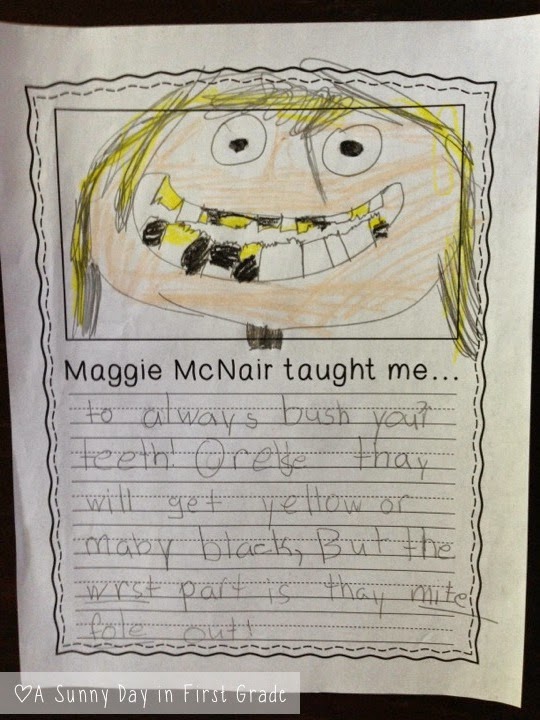 Maggie McNair taught me...
to always bush your
teeth! Orelse thay
will get yellow or
maby black, But the
wrst part is thay mite
fole out!
♡A Sunny Day in First Grade